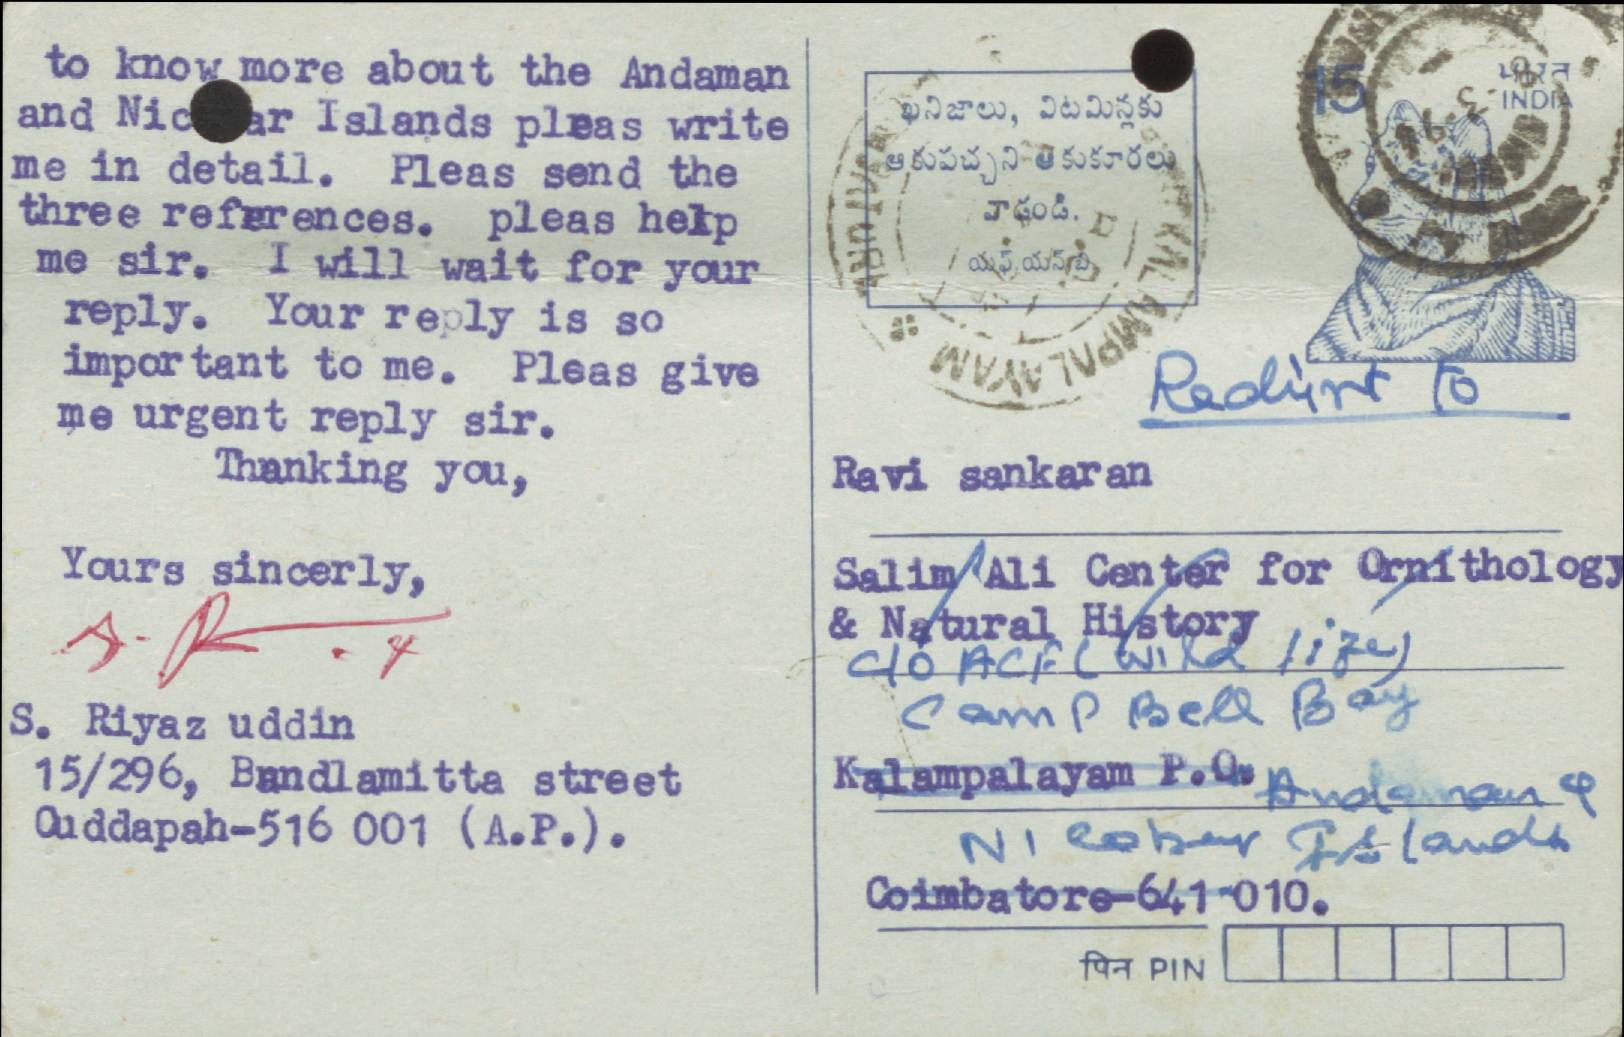 to know more about the Andaman
and Nic ar Islands pleas write
me in detail. Pleas send the
three references. pleas help
me sir. I will wait for your
reply. Your reply is so
important to me. Pleas give
me urgent reply sir.
Thanking you,
Yours sincerly,
S. Riyaz uddin
15/296, Bandlamitta street
Cuddapah-516 001 (A.P.).
ఖనిజాలు, విటమిన్లకు
ఆకుపచ్చని ఆకుకూరలు
వాడండి.
యఫ్.యన్.బి
KALAMPALAYAM
15
भारत
INDIA
Redirect to
Ravi sankaran
Salim Ali Center for Ornithology
& Natural History
C/o ACF (Wild life)
Camp Bell Bay
Kalampalayam P.O. Andaman &
Nicobar Islands
Coimbatore-641 010.
पिन PIN